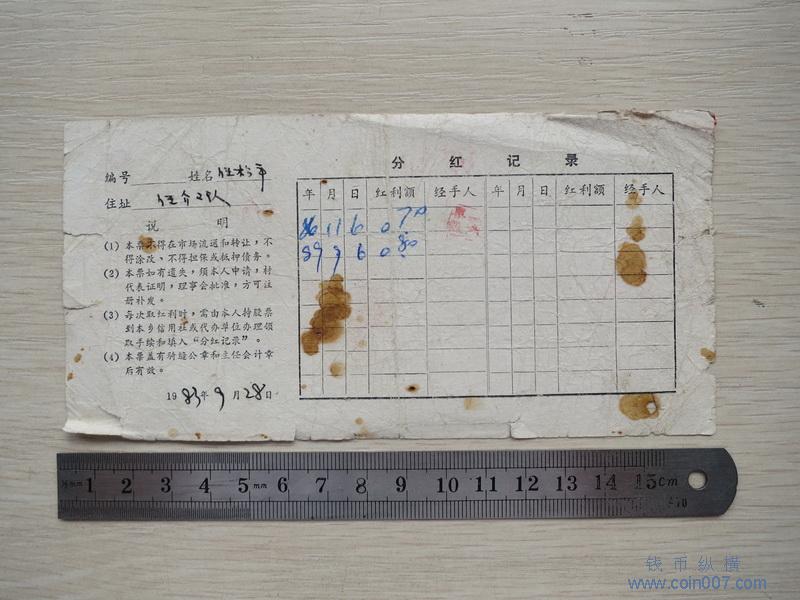 编号 姓名 任
住址 任 队
说 明
(1) 本票不得在市场流通和转让,不
得涂改、不得担保或抵押债务。
(2) 本票如有遗失,须本人申请,村
代表证明,理事会批准,方可注
册补发。
(3) 每次取红利时,需由本人持股票
到本乡信用社或代办单位办理领
取手续和填入“分红记录”。
(4) 本票盖有骑缝公章和主任会计章
后有效。
1983年9月28日
分 红 记 录
年 月 日 红利额 经手人 年 月 日 红利额 经手人
86 11 6 0.70
89 9 6 0.80
1 2 3 4 5 mm 6 7 8 9 10 11 12 13 14 15 cm
钱币纵横
www.coin007.com